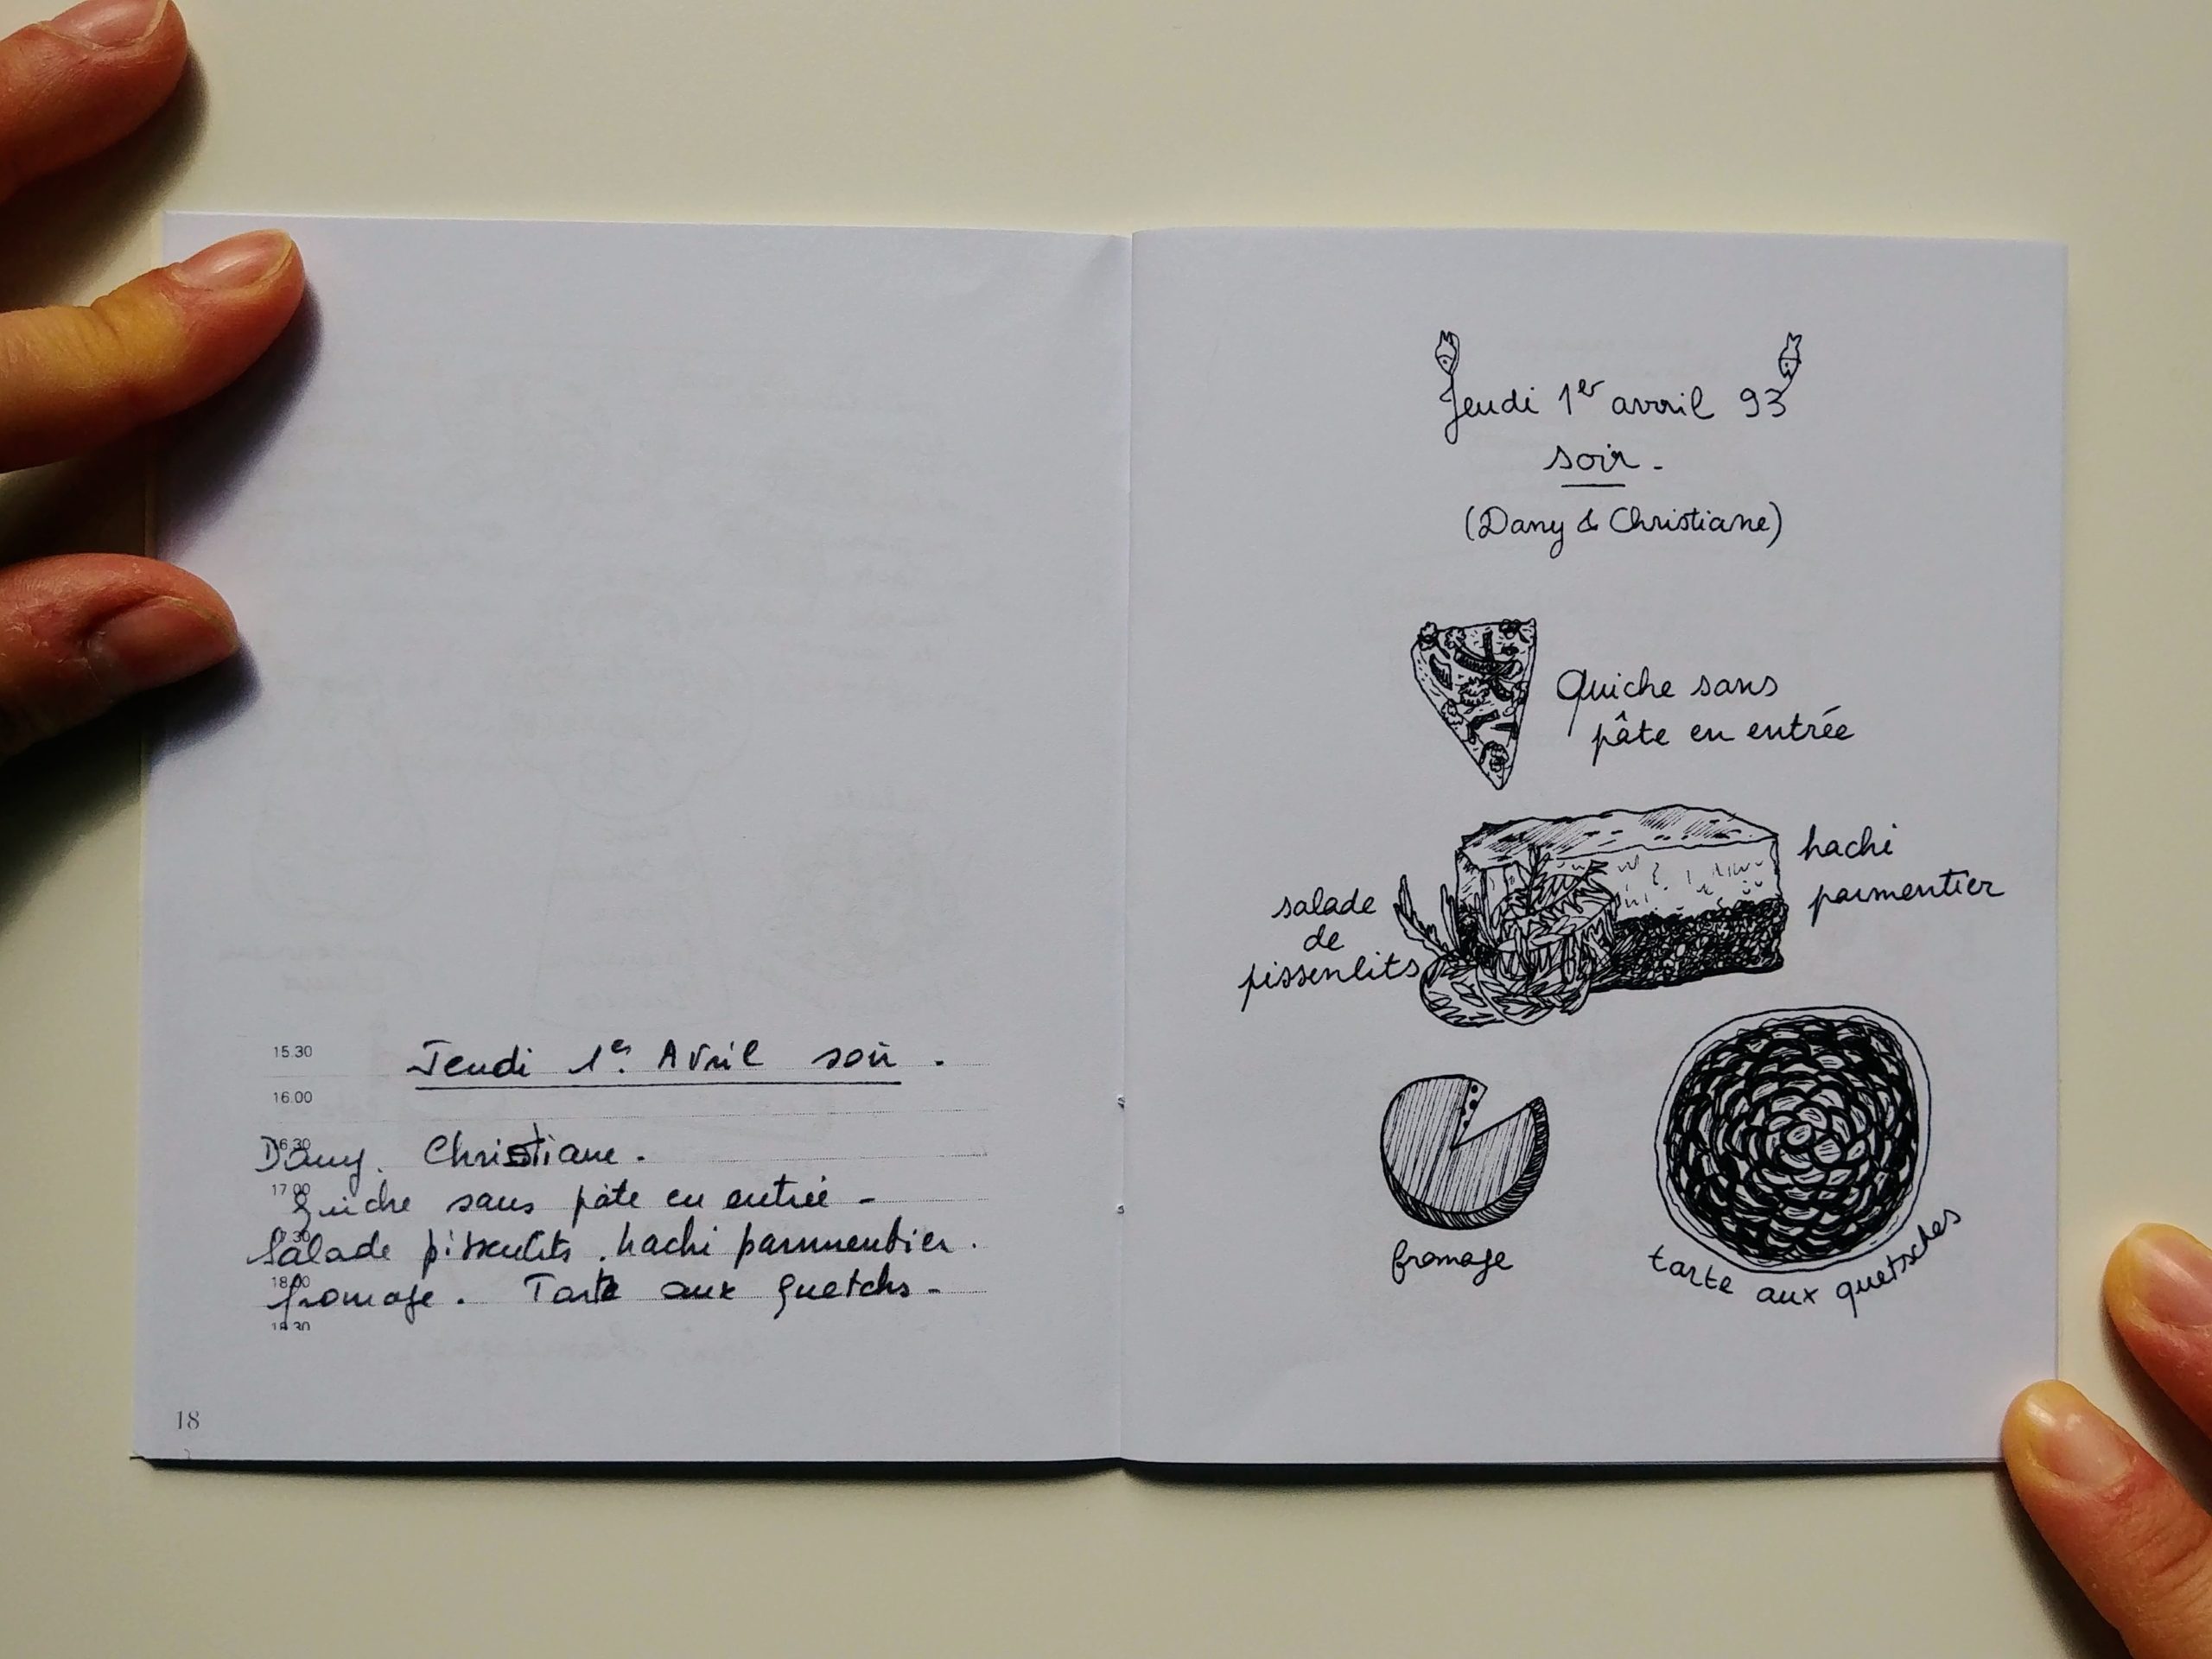 15.30
Jeudi 1er Avril soir.
16.00
16.30
Dany. Christiane.
17.00
Quiche sans pâte en entrée -
Salade pissenlits. hachi parmentier.
18.00
fromage. Tarte aux quetchs -
18.30
18
Jeudi 1er avril 93
soir -
(Dany & Christiane)
Quiche sans
pâte en entrée
hachi
parmentier
salade
de
pissenlits
fromage
tarte aux quetsches